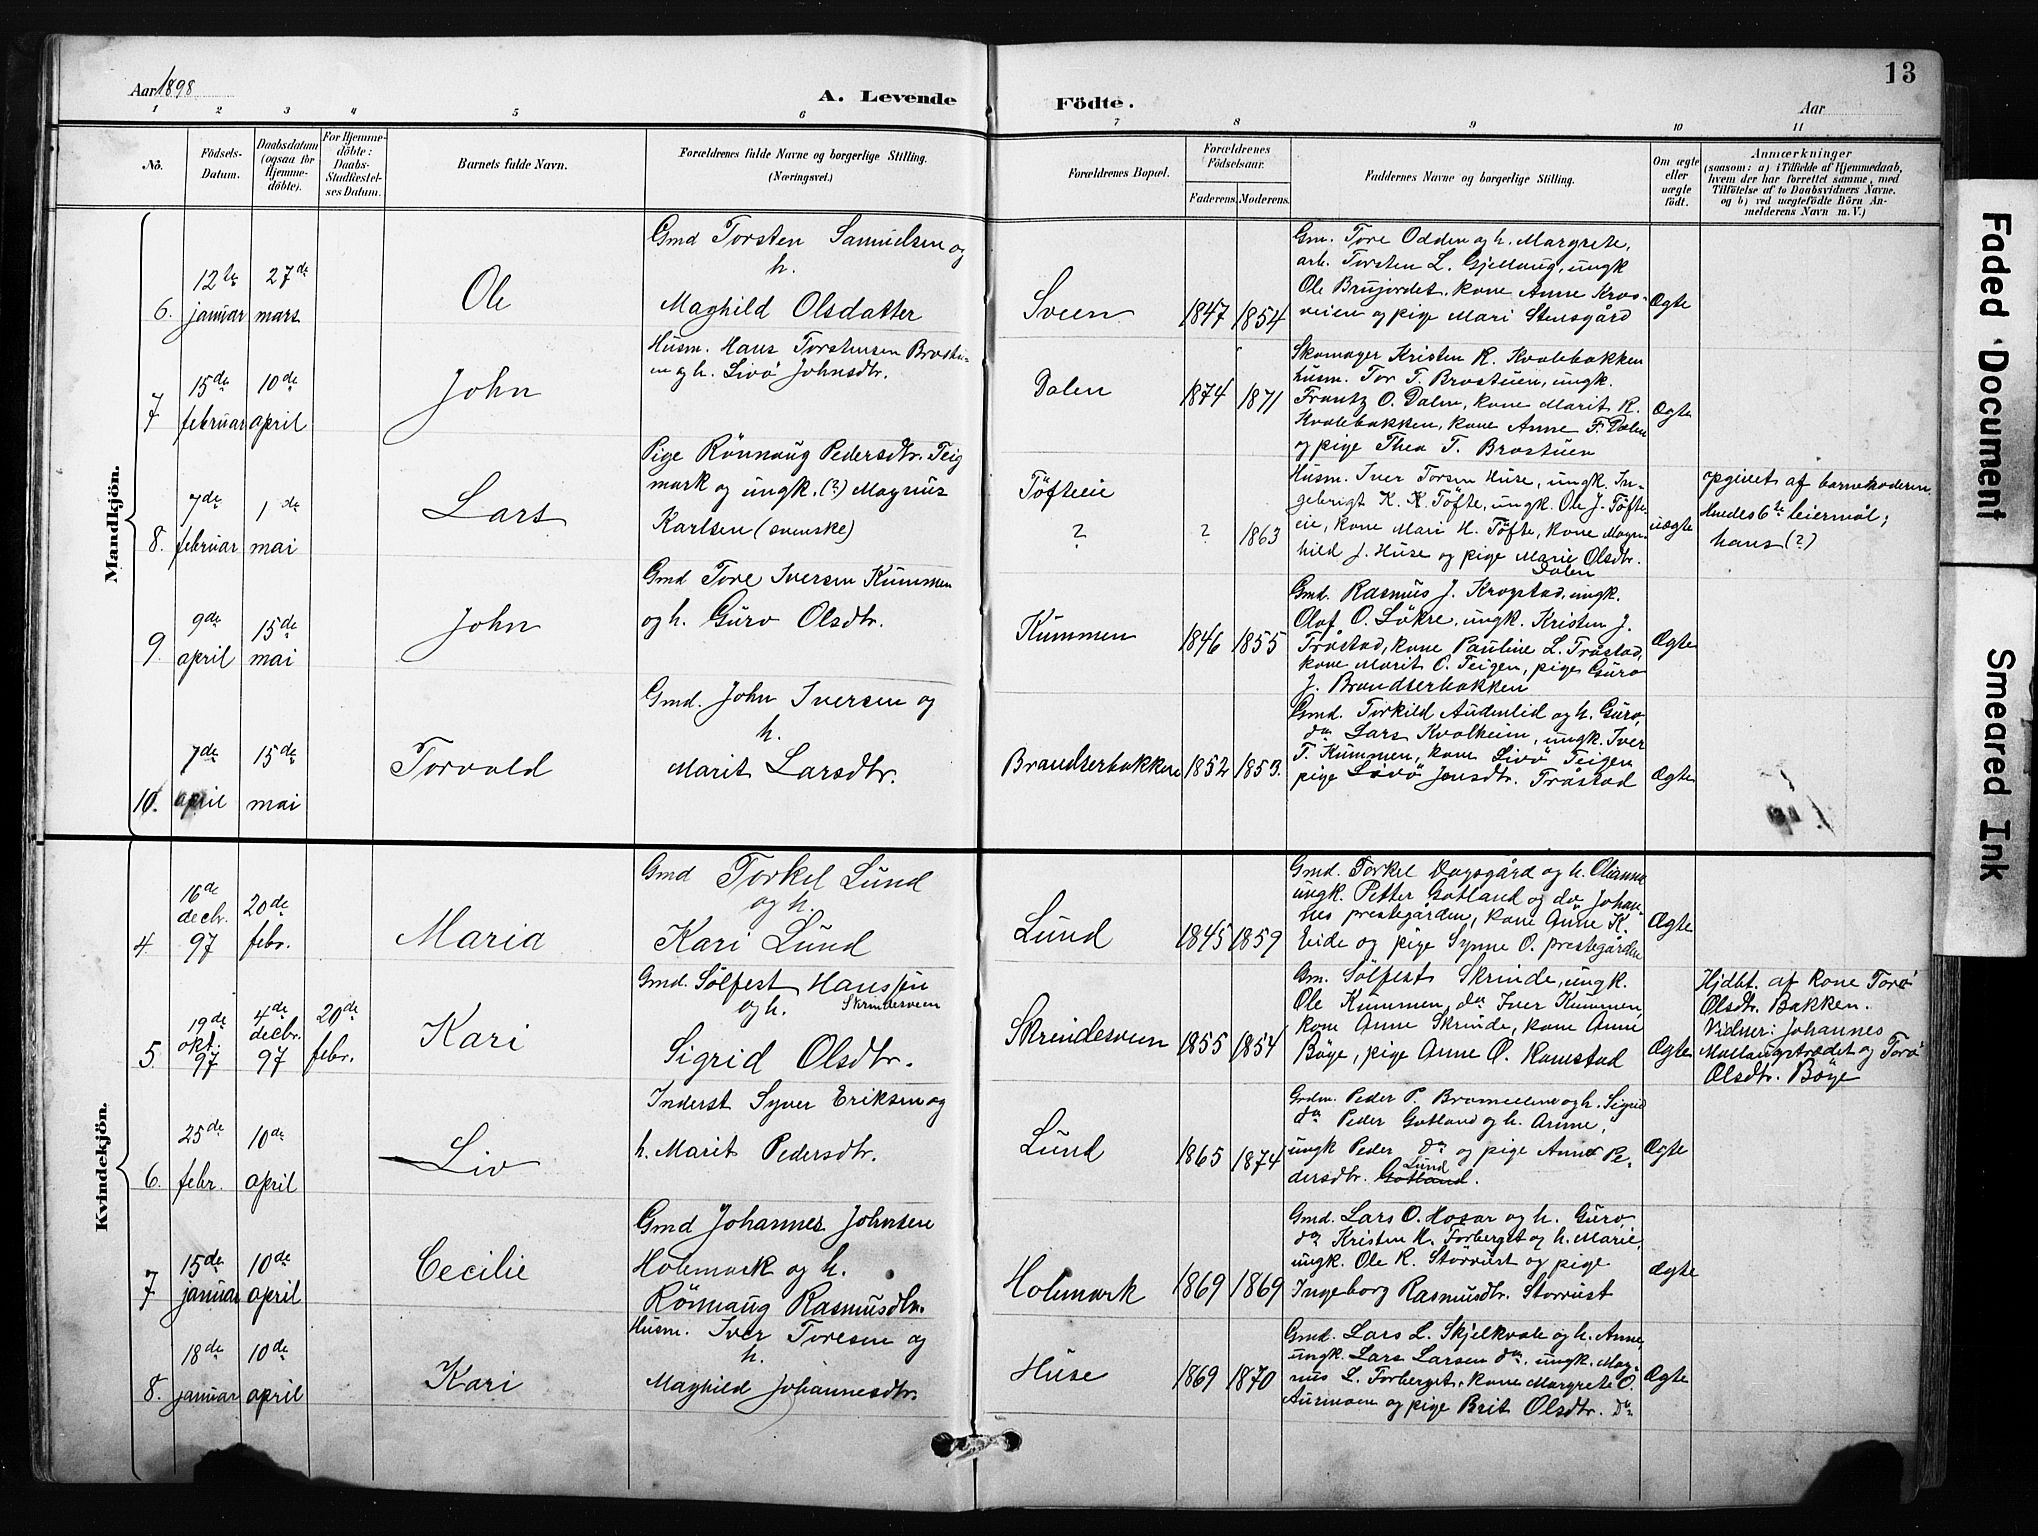 13
Aar 1898
A. Levende
Födte.
Aar
1 2 3 4 5 6 7 8 9 10 11
No.
Födsels-
Datum.
Daabsdatum
(ogsaa for
Hjemme-
döbte).
For Hjemme-
döbte:
Daabs-
Stadfæstel-
ses Datum.
Barnets fulde Navn.
Forældrenes fulde Navne og borgerlige Stilling.
(Næringsvei.)
Forældrenes Bopæl.
Forældrenes
Födselsaar.
Faderens.
Moderens.
Faddernes Navne og borgerlige Stilling.
Om ægte
eller
uægte
födt.
Anmærkninger
(saasom: a) i Tilfælde af Hjemmedaab,
hvem der har forrettet samme, med
Tilföielse af to Daabsvidners Navne.
og b) ved uægtefödte Börn An-
melderens Navn m. V.)
Mandkjön.
6.
12te
januar
27de
mars
Ole
Gmd Torsten Samuelsen og
h.
Maghild Olsdatter
Sveen
1847
1854
Gm. Tore Odden og h. Margrete,
arb. Torsten L. Gjellaug, ungk
Ole Brujordet, kone Anne Kros-
veien og pige Mari Stensgård
Ægte
7
15de
februar
10de
april
John
Husm. Hans Torstensen Brostu-
en og h. Livö Johnsdtr.
Dalen
1874
1871
Skomager Kristen R. Kvalebakken
husm. Tor T. Brostuen, ungk.
Frantz O. Dalen, kone Marit R.
Kvalebakken, kone Anne F. Dalen
og pige Thea T. Brostuen
Ægte
8.
7de
februar
1de
mai
Lars
Pige Rönnaug Pedersdtr. Teig
mark og ungk. (?) Magnus
Karlsen (svenske)
Töfteeie
?
?
1863
Husm. Iver Torsen Huse, ungk. In-
gebrigt K. K. Töfte, ungk. Ole J. Töfte
eie, kone Mari H. Töfte, kone Magn-
hild J. Huse og pige Marie Olsdtr.
Dalen
uægte
opgivet af barnemoderen
Hendes 6te leiermål;
hans (?)
9.
9de
april
15de
mai
John
Gmd Tore Iversen Kummen
og h. Guro Olsdtr.
Kummen
1846
1855
Gmd. Rasmus J. Krogstad, ungk.
Olaf O. Lökre, ungk. Kristen J.
Tråstad, kone Pauline L. Tråstad,
kone Marit O. Teigen, pige Guro
J. Brandserbakken
Ægte
10.
7de
april
15de
mai
Torvald
Gmd. John Iversen og
h.
Marit Larsdtr.
Brandserbakken
1852
1853.
Gmd. Torkild Audenlid og h. Guro,
do Lars Kvalheim, ungk. Iver
T. Kummen, kone Livö Teigen
pige Livö Jonsdtr. Tråstad
Ægte
Kvindekjön.
4
16de
decbr.
97
20de
febr.
Maria
Gmd Torkel Lund
og h.
Kari Lund
Lund
1845
1859
Gmd. Torkel Dagsgård og h. Olianna
ungk. Petter Gotland og do Johan-
nes prestegården, kone Anne K.
Eide og pige Synne O. prestegården
Ægte
5.
19de
okt.
97
4de
decbr.
97
20de
febr.
Kari
Gmd. Sölfest Hanssen
og h. Skrindesveen
Sigrid Olsdtr.
Skrindesveen
1855
1854
Gm. Sölfest Skrinde, ungk.
Ole Kummen, do Iver Kummen,
kone Anne Skrinde, kone Anne
Böye, pige Anne O. Ramstad
Ægte
Hjdbt. af kone Torö
Olsdtr. Bakken.
Vidner: Johannes
Mollaugstrædet og Torö
Olsdtr. Böye
6.
25de
febr.
10de
april
Liv
Inderst Syver Eriksen og
h. Marit Pedersdtr.
Lund
1865
1874
Grdm. Peder P. Bromellem og h. Sigrid
do Peder Gotland og h. Anne,
ungk Peder do og pige Anne Pe-
dersdtr. Gotland. Lund
Ægte
7
15de
januar
10de
april
Cecilie
Gmd Johannes Johnsen
Holemark og h.
Rönnaug Rasmusdtr.
Holemark
1869
1869
Gmd. Lars O. Hosar og h. Guro,
do Kristen K. Forberget og h. Marie,
ungk. Ole R. Storrust og pige
Ingeborg Rasmusdtr. Storrust
Ægte
8.
18de
januar
10de
april
Kari
Husm. Iver Toresen og
h.
Maghild Johannesdtr.
Huse
1869
1870
Gmd. Lars L. Skjelkvale og h. Anne,
ungk. Lars Larsen do, ungk. Mag-
nus L. Forberget, kone Margrete O.
Aurmoen og pige Brit Olsdtr. do
Ægte
Faded Document
Smeared Ink